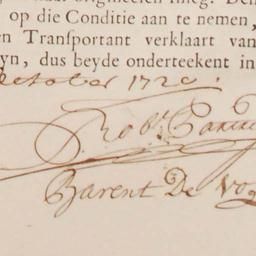 op die Conditie aan te nemen,
en Transportant verklaart van
yn, dus beyde onderteekent in
October 1720.
Rob.
Barent De Vo